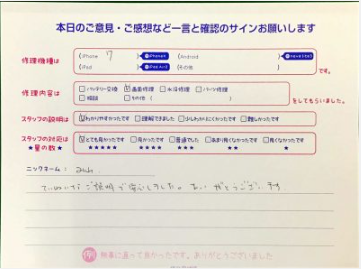 本日のご意見・ご感想など一言と確認のサインお願いします
修理機種は (iPhone 7 (Android
(iPad (その他 です。
修理内容は □バッテリー交換 ☑画面修理 □水没修理 □パーツ修理
□相談 □その他( ) をしてもらいました。
スタッフの説明は ☑わかりやすかったです □理解できました □少しわかりにくかったです □難しかったです
スタッフの対応は ☑とても良かったです □良かったです □普通でした □あまり良くなかったです □良くなかったです
★星の数★ ★★★★★ ★★★★ ★★★ ★★ ★
ニックネーム:
ていねいなご説明で安心しました。ありがとうございます
無事に直って良かったです。ありがとうございました